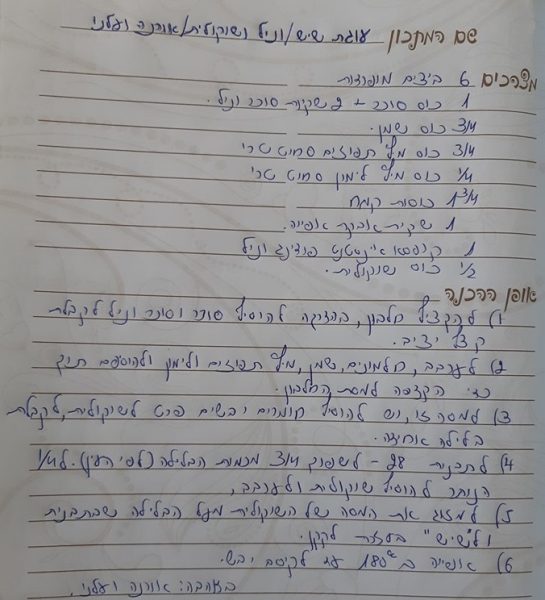 שם המתכון עוגת שיש/וניל ושוקולית/אורנה ועלני
מצרכים 6 ביצים מופרדות
1 כוס סוכר + 2 שקיות סוכר וניל.
3/4 כוס שמן.
3/4 כוס מיץ תפוזים סחוט טרי
1/4 כוס מיץ לימון סחוט טרי
1 3/4 כוסות קמח
1 שקית אבקת אפייה.
1 קופסא אינסטנט פודינג וניל
1/2 כוס שוקולית.
אופן ההכנה
1) להקציף חלבון, בהדרגה להוסיף סוכר וסוכר וניל לקבלת
קצף יציב.
2) לערבב, חלמונים, שמן, מיץ תפוזים ולימון ולהוסיפם תוך
כדי הקצפה למסת החלבון.
3) למסה זו, יש להוסיף חומרים יבשים פרט לשוקולית, לקבלת
בלילה אחידה.
4) לתבנית 28 - לשפוך 3/4 מכמות הבלילה (לפי העין). ל 1/4
הנותר להוסיף שוקולית ולערבב,
5) למזוג את המסה של השוקולית מעל הבלילה שבתבנית
ול"שיש" בעזרת לקקן.
6) אפייה ב 180° עד לקיסם יבש.
באהבה: אורנה ועלני.